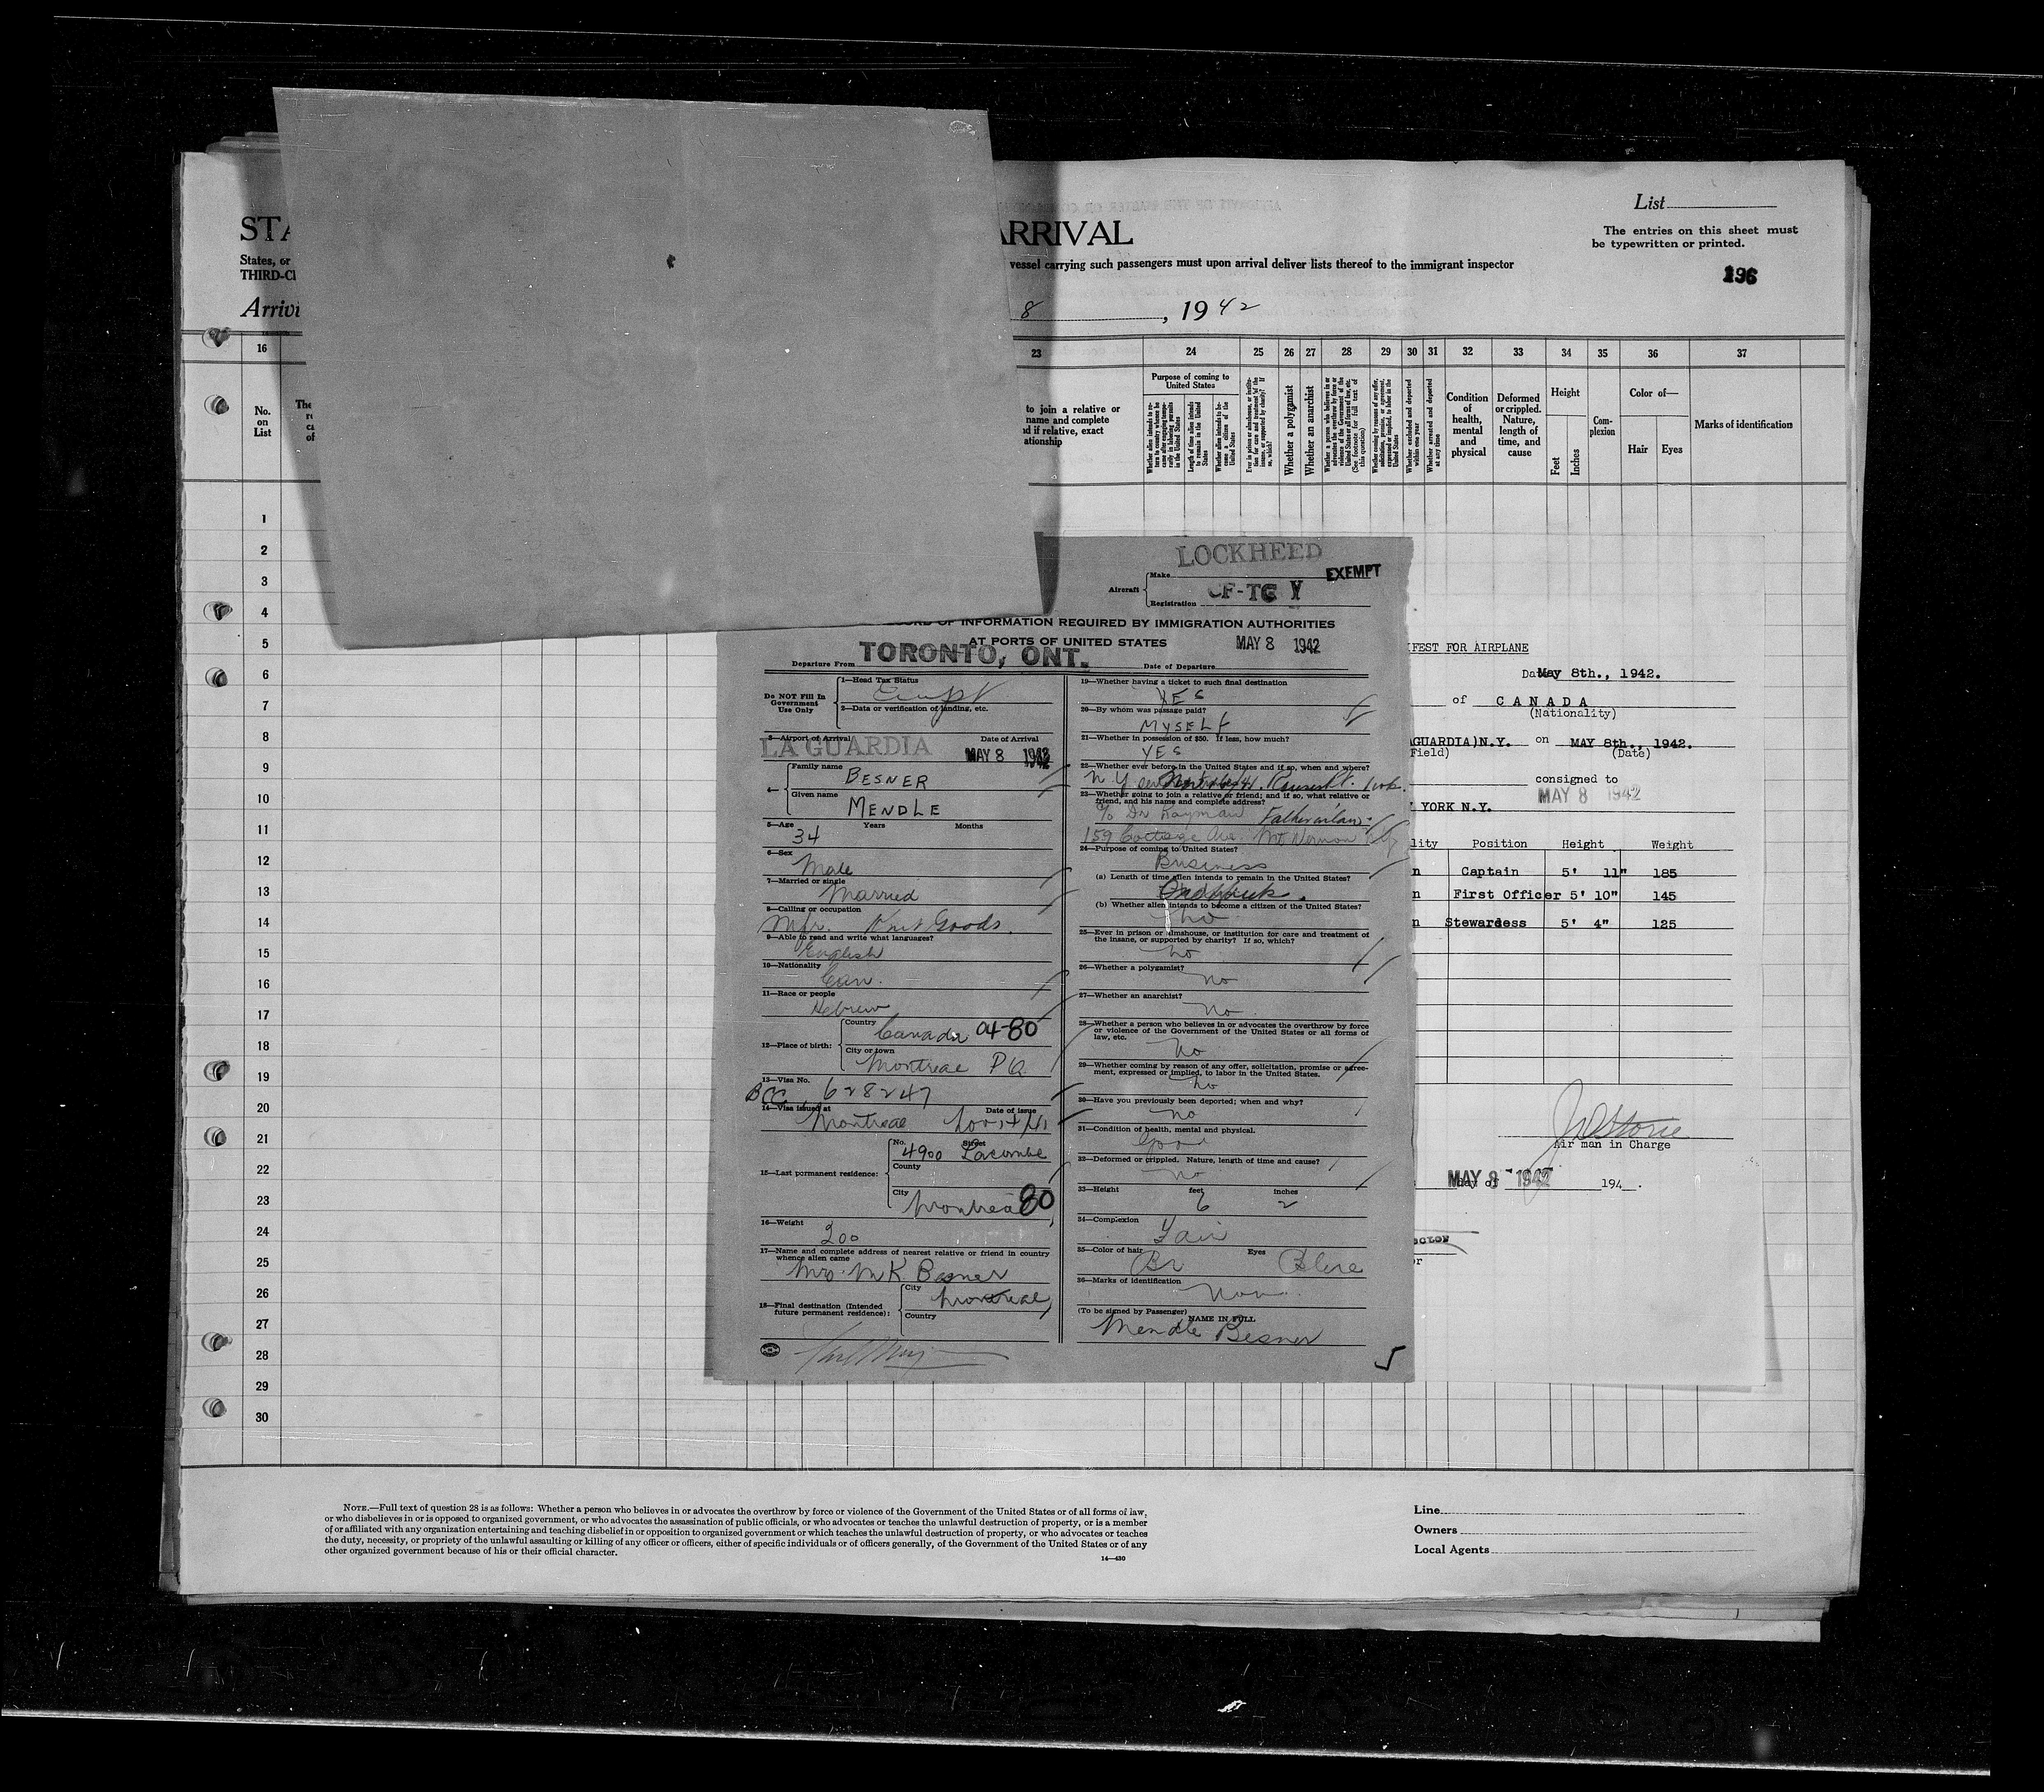 STA
ARRIVAL
List
States, or
vessel carrying such passengers must upon arrival deliver lists thereof to the immigrant inspector
THIRD-Cl
The entries on this sheet must
be typewritten or printed.
196
Arrivi
8, 1942
16
23
24
25
26
27
28
29
30
31
32
33
34
35
36
37
No.
on
List
The
to join a relative or
name and complete
nd if relative, exact
ationship
Purpose of coming to
United States
Whether alien intends to re-
turn to country whence he
came after engaging tempo-
rarily in laboring pursuits
in the United States
Length of time alien intends
to remain in the United
States
Whether alien intends to be-
come a citizen of the
United States
Ever in prison or almshouse, or institu-
tion for care and treatment of the
insane, or supported by charity? If
so, which?
Whether a polygamist
Whether an anarchist
Whether a person who believes in or
advocates the overthrow by force or
violence of the Government of the
United States or all forms of law, etc.
(See footnote for full text of
this question)
Whether coming by reason of any offer,
solicitation, promise, or agreement,
expressed or implied, to labor in the
United States
Whether excluded and deported
within one year
Whether arrested and deported
at any time
Condition
of
health,
mental
and
physical
Deformed
or crippled.
Nature,
length of
time, and
cause
Height
Feet
Inches
Com-
plexion
Color of—
Hair
Eyes
Marks of identification
1
2
3
4
5
6
7
8
9
10
11
12
13
14
15
16
17
18
19
20
21
22
23
24
25
26
27
28
29
30
LOCKHEED
Make
EXEMPT
Aircraft
CF-TC Y
Registration
RECORD OF INFORMATION REQUIRED BY IMMIGRATION AUTHORITIES
AT PORTS OF UNITED STATES
Departure From TORONTO, ONT.
MAY 8 1942
Date of Departure
Do NOT Fill In
Government
Use Only
1—Head Tax Status
Exempt
2—Data or verification of landing, etc.
3—Airport of Arrival
Date of Arrival
LA GUARDIA
MAY 8 1942
4—
Family name
BESNER
Given name
MENDLE
5—Age
Years
Months
34
6—Sex
Male
7—Married or single
Married
8—Calling or occupation
Mfr. Knit Goods.
9—Able to read and write what languages?
English
10—Nationality
Can.
11—Race or people
Hebrew
12—Place of birth:
Country
Canada 04-80
City or town
Montreal P Q
13—Visa No.
BCC 628247
14—Visa issued at
Date of issue
Montreal
15—Last permanent residence:
No.
Street
4900 Lacombe
County
City
Montreal 80
16—Weight
200
17—Name and complete address of nearest relative or friend in country
whence alien came
Mrs. M K Besner
18—Final destination (Intended
future permanent residence):
City
Montreal
Country
19—Whether having a ticket to such final destination
YES
20—By whom was passage paid?
MYSELF
21—Whether in possession of $50. If less, how much?
YES
22—Whether ever before in the United States and if so, when and where?
N.Y.
23—Whether going to join a relative or friend; and if so, what relative or
friend, and his name and complete address?
c/o Father in law.
159 Cottage Ave. Mt Vernon
24—Purpose of coming to United States?
Business
(a) Length of time alien intends to remain in the United States?
One Week.
(b) Whether alien intends to become a citizen of the United States?
no
25—Ever in prison or almshouse, or institution for care and treatment of
the insane, or supported by charity? If so, which?
no
26—Whether a polygamist?
no
27—Whether an anarchist?
no
28—Whether a person who believes in or advocates the overthrow by force
or violence of the Government of the United States or all forms of
law, etc.
no
29—Whether coming by reason of any offer, solicitation, promise or agree-
ment, expressed or implied, to labor in the United States.
no
30—Have you previously been deported; when and why?
no
31—Condition of health, mental and physical.
Good
32—Deformed or crippled. Nature, length of time and cause?
no
33—Height
feet
inches
6
2
34—Complexion
Fair
35—Color of hair
Eyes
Br
Blue
36—Marks of identification
None
(To be signed by Passenger)
NAME IN FULL
Mendle Besner
5
FEST FOR AIRPLANE
Date May 8th., 1942.
of CANADA
(Nationality)
GUARDIA)N.Y. on MAY 8th., 1942.
Field)
(Date)
consigned to
MAY 8 1942
YORK N.Y.
lity
Position
Height
Weight
n Captain 5' 11" 185
n First Officer 5' 10" 145
n Stewardess 5' 4" 125
Air man in Charge
MAY 8 1942
day of
194 .
or
NOTE.—Full text of question 28 is as follows: Whether a person who believes in or advocates the overthrow by force or violence of the Government of the United States or of all forms of law,
or who disbelieves in or is opposed to organized government, or who advocates the assassination of public officials, or who advocates or teaches the unlawful destruction of property, or is a member
of or affiliated with any organization entertaining and teaching disbelief in or opposition to organized government or which teaches the unlawful destruction of property, or who advocates or teaches
the duty, necessity, or propriety of the unlawful assaulting or killing of any officer or officers, either of specific individuals or of officers generally, of the Government of the United States or of any
other organized government because of his or their official character.
14—430
Line
Owners
Local Agents